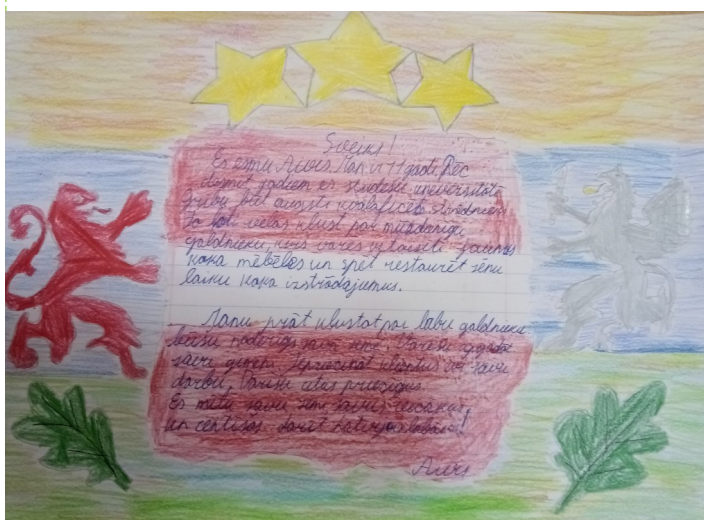 Sveiki!
Es esmu Aivis. Man ir 11 gadi. Pēc
desmit gadiem es studēšu universitātē
gribu būt augsti kvalificēts
Es ļoti vēlos kļust par mūsdienīgu
galdnieku, kurš varēs iztaisīt jaunas
koka mēbeles un spēt restaurēt sēnu
laiku koka izstrādājumus.
Manu prāt kļustot par labu galdnieku
būšu noderīgs savai zemei. Varēšu
savu ģimeni. Iepriecināt klientus ar savu
darbu,
Es mīlu savu zemi, savus vecākus,
un centīšos darīt Latviju labāku!